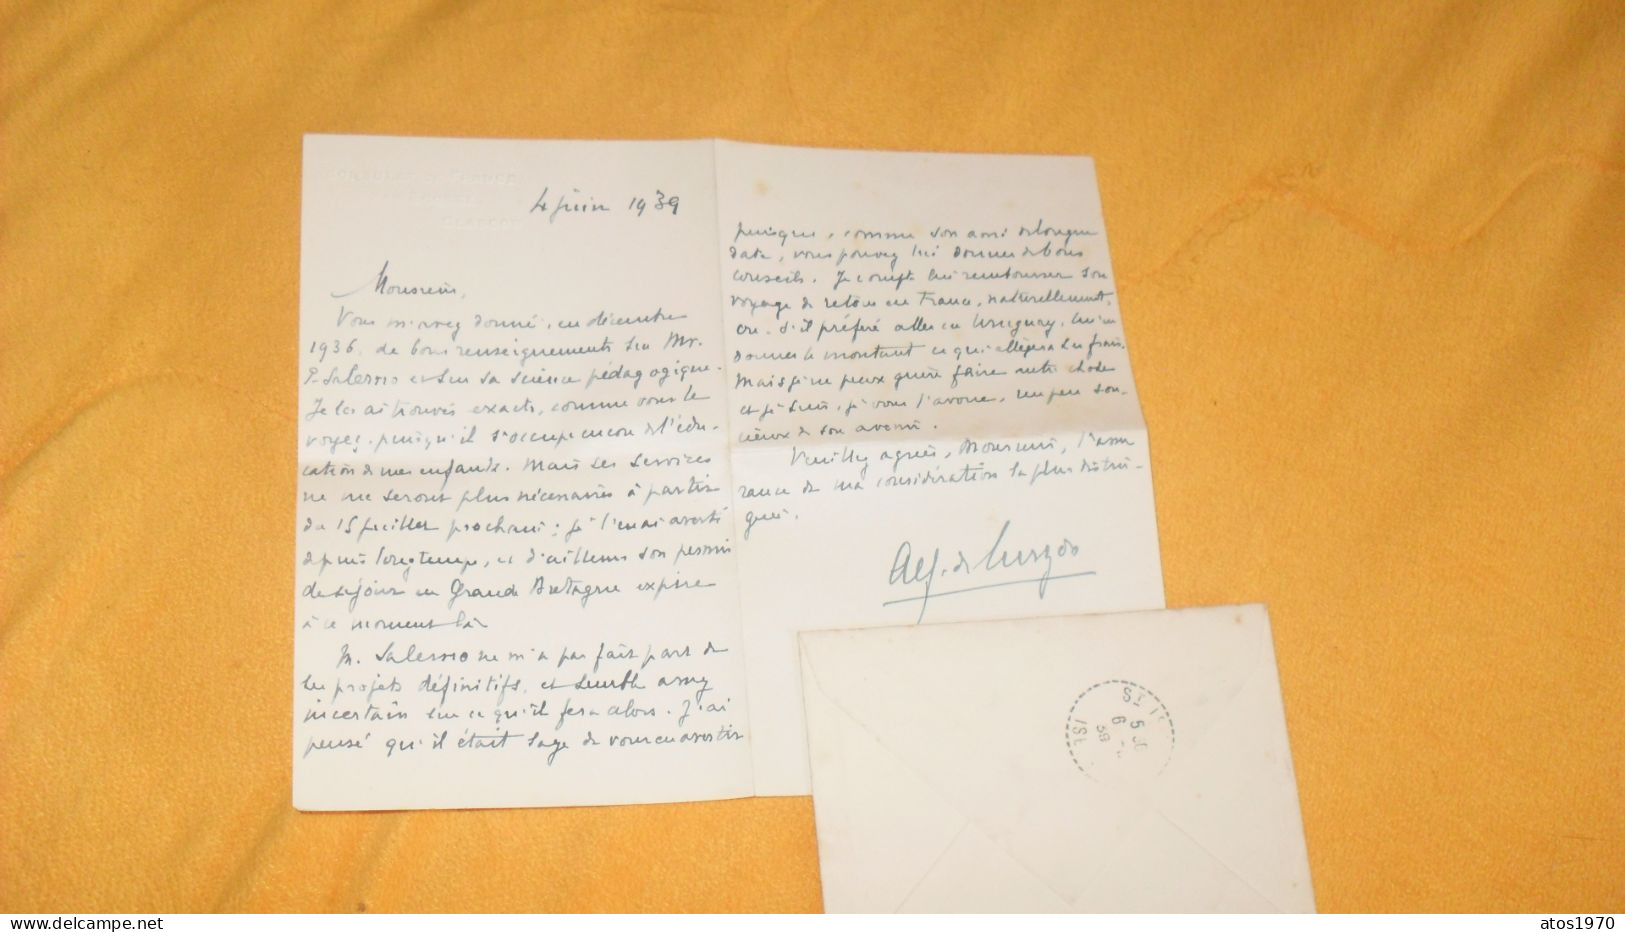 CONSULAT DE FRANCE
GLASGOW
4 juin 1939
Monsieur,
Vous m'avez donné, en décembre
1936, de bons renseignements sur Mr.
P. Salerno et sur sa science pédagogique.
Je les ai trouvés exacts, comme vous le
voyez, puisqu'il s'occupe encore de l'édu-
cation de mes enfants. Mais ses services
ne me seront plus nécessaires à partir
du 15 juillet prochain ; je l'en ai averti
depuis longtemps, et d'ailleurs son permis
de séjour en Grande Bretagne expire
à ce moment là
M. Salerno ne m'a pas fait part de
ses projets définitifs, et semble assez
incertain sur ce qu'il fera alors. J'ai
pensé qu'il était sage de vous en avertir
puisque, comme son ami de longue
date, vous pouvez lui donner de bons
conseils. Je compte lui rembourser son
voyage de retour en France, naturellement,
ou, s'il préfère aller en Uruguay, lui en
donner le montant ce qui allègera ses frais.
Mais je ne peux guère faire autre chose
et je suis, je vous l'avoue, un peu sou-
cieux de son avenir.
Veuillez agréer, Monsieur, l'assu
rance de ma considération la plus distin-
guée.
ST
5
6
39
ISE
atos1970